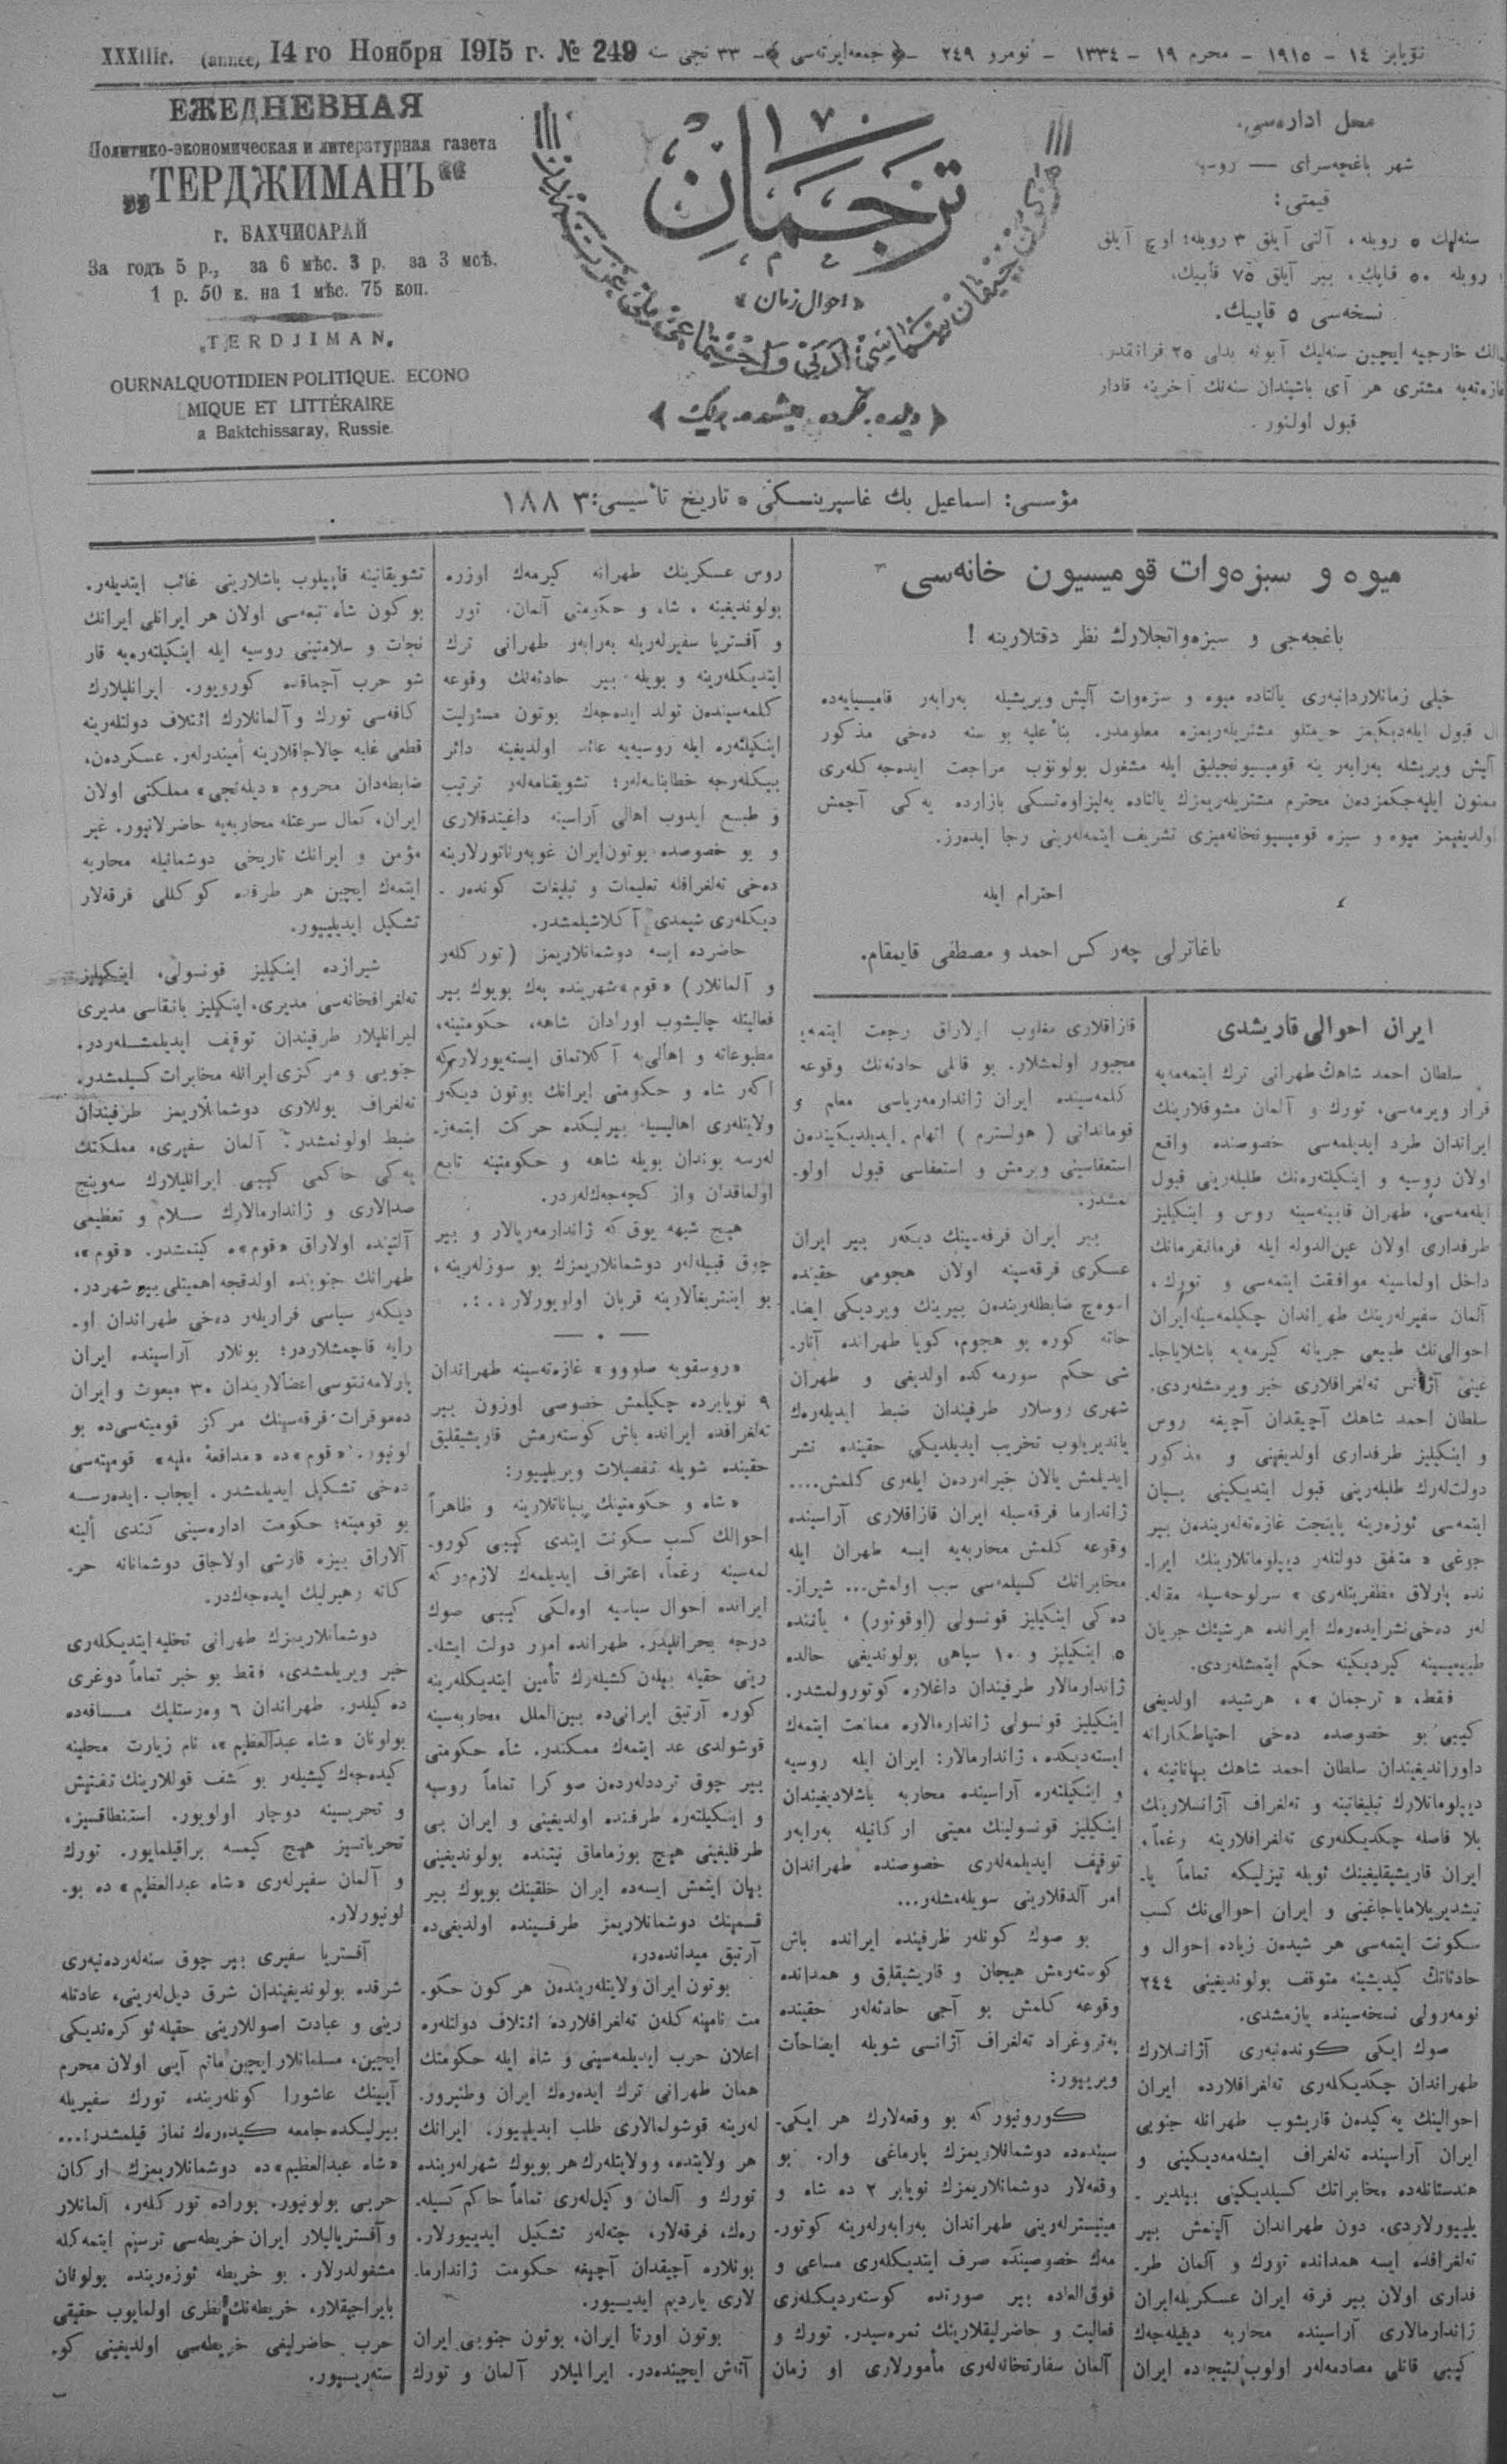 XXXIIIг. (année) 14 го Ноября 1915 г. № 249
نويابر ١٤ - ١٩١٥ - محرم ١٩ - ١٣٣٤ - نومرو ٢٤٩ -﴿ جمعه‌ايرته‌سى ﴾- ٣٣ نجى سنه
ЕЖЕДНЕВНАЯ
Политико-экономическая и литературная газета
„ТЕРДЖИМАНЪ“
г. БАХЧИСАРАЙ
За годъ 5 р., за 6 мѣс. 3 р. за 3 мсѣ.
1 р. 50 к. на 1 мѣс. 75 коп.
„TERDJIMAN„
OURNALQUOTIDIEN POLITIQUE. ECONO
MIQUE ET LITTÉRAIRE
a Baktchissaray, Russie.
ترجمان
«احوال زمان»
﴿ ديلده، فكرده، ايشده، برلك ﴾
محل اداره‌سى.
شهر باغچه‌سراى — روسيه
قيمتى:
سنه‌ليك ٥ روبله، آلتى آيلق ٣ روبله؛ اوچ آيلق
روبله ٥٠ قاپيك، بير آيلق ٧٥ قاپيك،
نسخه‌سى ٥ قاپيك.
خارجيه ايچين سنه‌ليك آبونه بدلى ٢٥ فرانقدر.
مشترى هر آى باشيندان سنه‌نك آخرينه قادار
قبول اولنور.
مؤسسى: اسماعيل بك غاسپرينسكى * تاريخ تأسيسى: ١٨٨٣
ميوه و سبزه‌وات قوميسيون خانه‌سى
باغچه‌جى و سبزه‌واتجلارك نظر دقتلارينه !
خيلى زمانلاردانبەرى يالتاده ميوه و سبزه‌وات آليش ويريشيله به‌رابه‌ر
قبول ايله‌ديكمز حرمتلو مشتريله‌ريمزه معلومدر. بناً عليه بو سنه ده‌خى مذكور
آليش ويريشله به‌رابه‌ر ينه قوميسيونجيليق ايله مشغول بولونوب مراجعت ايده‌جه‌كله‌رى
ممنون ايليه‌جكمزدن محترم مشتريله‌ريمزك يالتاده يه‌ليزاوه‌تسكى بازارده يه‌كى آچمش
اولديغيمز ميوه و سبزه قوميسيونخانه‌ميزى تشريف ايتمه‌له‌رينى رجا ايده‌رز.
احترام ايله
باغاترلى چه‌ركس احمد و مصطفى قايمقام.
ايران احوالى قاريشدى
سلطان احمد شاهك طهرانى ترك ايتمه‌مايه
قرار ويرمه‌سى، تورك و آلمان مشوقلارينك
ايراندان طرد ايديلمه‌سى خصوصنده واقع
اولان روسيه و اينكيلته‌ره‌نك طلبله‌رينى قبول
ايله‌مه‌سى، طهران قابينه‌سينه روس و اينكيليز
طرفدارى اولان عين‌الدوله ايله فرمانفرمانك
داخل اولماسينه موافقت ايتمه‌سى و تورك،
آلمان سفيرله‌رينك طهراندان چكيلمه‌سيله ايران
احوالى‌نك طبيعى جريانه كيرمه‌يه باشلاياجا-
غينى آژانس ته‌لغرافلارى خبر ويرمشله‌ردى.
سلطان احمد شاهك آچيقدان آچيغه روس
و اينكيليز طرفدارى اولديغينى و مذكور
دولت‌له‌رك طلبله‌رينى قبول ايتديكينى بيان
ايتمه‌سى ئوزه‌رينه پايتخت غازه‌ته‌له‌ريندن بير
چوغى «متفق دولتله‌ر ديپلوماتلارينك ايرا-
نده پارلاق مظفريتله‌رى» سرلوحه‌سيله مقاله-
له‌ر ده‌خى نشر ايده‌ره‌ك ايرانده هرشيئك جريان
طبيعيسينه كيرديكينه حكم ايتمشله‌ردى.
فقط، «ترجمان»، هرشيده اولديغى
كيبى بو خصوصده ده‌خى احتياطكارانه
داورانديغيندان سلطان احمد شاهك بياناتينه،
ديپلوماتلارك تبليغاتينه و ته‌لغراف آژانسلارينك
بلا فاصله چكديكله‌رى ته‌لغرافلارينه رغماً،
ايران قاريشيقليغينك ئويله تيزليكه تماماً يا-
تيشديريلامايا‌جاغينى و ايران احوالى‌نك كسب
سكونت ايتمه‌سى هر شيدن زياده احوال و
حادثاتك كيديشينه متوقف بولونديغينى ٢٤٤
نومه‌رولى نسخه‌سينده يازمشدى.
صوك ايكى كونده‌نبه‌رى آژانسلارك
طهراندان چكديكله‌رى ته‌لغرافلارده ايران
احوالينك يه‌كيدن قاريشوب طهرانله جنوبى
ايران آراسينده ته‌لغراف ايشله‌مه‌ديكينى و
هندستانله‌ده مخابراتك كسيلديكينى بيلدير-
يليبورلاردى. دون طهراندان آلينمش بير
ته‌لغرافده ايسه همدانده تورك و آلمان طر-
فدارى اولان بير فرقه ايران عسكريله ايران
ژاندارمالارى آراسينده محاربه دينيله‌جه‌ك
كيبى قانلى مصادمه‌له‌ر اولوب نتيجه‌ده ايران
قازاقلارى مغلوب اولاراق رجعت ايتمه‌يه
مجبور اولمشلار. بو قانلى حادثه‌نك وقوعه
كلمه‌سينده ايران ژاندارمه‌رياسى معلم و
قوماندانى (هولسترم) اتهام ايديلديكيندن
استعفاسينى ويرمش و استعفاسى قبول اولو-
نمشدر.
بير ايران فرقه‌سينك ديكه‌ر بير ايران
عسكرى فرقه‌سينه اولان هجومى حقينده
اسوه‌چ ضابطله‌ريندن بيرينك ويرديكى ايضا-
حاته كوره بو هجوم، كويا طهرانده آنار-
شى حكم سورمه‌كده اولديغى و طهران
شهرى روسلار طرفيندان ضبط ايديله‌ره‌ك
يانديريلوب تخريب ايديلديكى حقينده نشر
ايديلمش يالان خبرله‌رده‌ن ايله‌رى كلمش....
ژاندارما فرقه‌سيله ايران قازاقلارى آراسينده
وقوعه كلمش محاربه‌يه ايسه طهران ايله
مخابراتك كسيلمه‌سى سبب اولمش... شيراز-
ده‌كى اينكيليز قونسولى (اوقونور) ياننده
٥ اينكيليز و ١٠ سپاهى بولونديغى حالده
ژاندارمالار طرفيندان داغلاره كوتورولمشدر.
اينكيليز قونسولى ژاندارمالاره ممانعت ايتمه‌ك
ايسته‌ديكده، ژاندارمالار: ايران ايله روسيه
و اينكيلته‌ره آراسينده محاربه باشلاديغيندان
اينكيليز قونسولينك معيتى اركانيله به‌رابه‌ر
توقيف ايديلمه‌له‌رى خصوصنده طهراندان
امر آلدقلارينى سويله‌مشله‌ر...
بو صوك كونله‌ر ظرفينده ايرانده باش
كوسته‌رمش هيجان و قاريشيقلق و همدانده
وقوعه كلمش بو آجى حادثه‌له‌ر حقينده
په‌تروغراد ته‌لغراف آژانسى شويله ايضاحات
ويرييور:
كورونيور كه بو وقعه‌لارك هر ايكى-
سينده‌ده دوشمانلاريمزك پارماغى وار. بو
وقعه‌لار دوشمانلاريمزك نويابر ٢ ده شاه و
مينيسترله‌رينى طهراندان به‌رابه‌رله‌رينه كوتور-
مه‌ك خصوصينده صرف ايتديكله‌رى مساعى و
فوق‌العاده بير صورتده كوسته‌رديكله‌رى
فعاليت و حاضرليقلارينك ثمره‌سيدر. تورك و
آلمان سفارتخانه‌له‌رى مأمورلارى او زمان
روس عسكرينك طهرانه كيرمه‌ك اوزره
بولونديغينه، شاه و حكومتى آلمان، تور
و آفستريا سفيرله‌ريله به‌رابه‌ر طهرانى ترك
ايتديكله‌رينه و بويله بير حادثه‌نك وقوعه
كلمه‌سيندن تولد ايده‌جه‌ك بوتون مسئوليت
اينكيلته‌ره ايله روسيه‌يه عائد اولديغينه دائر
بيكله‌رجه خطابنامه‌له‌ر؛ تشويقنامه‌له‌ر ترتيب
و طبع ايدوب اهالى آراسينه داغيتدقلارى
و بو خصوصده بوتون ايران غوبه‌رناتورلارينه
ده‌خى ته‌لغرافله تعليمات و تبليغات كونده‌ر-
ديكله‌رى شيمدى آكلاشيلمشدر.
حاضرده ايسه دوشمانلاريمز (توركله‌ر
و آلمانلار) «قوم» شهرينده پەك بويوك بير
فعاليتله چاليشوب اورادان شاهه، حكومتينه،
مطبوعاته و اهالى‌يه آكلاتماق ايسته‌يورلاركه
اكه‌ر شاه و حكومتى ايرانك بوتون ديكه‌ر
ولايتله‌رى اهاليسيله بيرليكده حركت ايتمه‌ز-
له‌رسه بوندان بويله شاهه و حكومتينه تابع
اولماقدان واز كچه‌جه‌كله‌ردر.
هيچ شبهه يوق كه ژاندارمه‌ريالار و بير
چوق قبيله‌له‌ر دوشمانلاريمزك بو سوزله‌رينه،
بو اينتريغالارينه قربان اولويورلار...
«روسقويه صلووو» غازه‌ته‌سينه طهراندان
٩ نويابرده چكيلمش خصوصى اوزون بير
ته‌لغرافده ايرانده باش كوسته‌رمش قاريشيقليق
حقينده شويله تفصيلات ويريلييور:
«شاه و حكومتينك بياناتلارينه و ظاهراً
احوالك كسب سكونت ايتدى كيبى كورو-
لمه‌سينه رغماً، اعتراف ايديلمه‌ك لازمدركه
ايرانده احوال سياسيه اوه‌لكى كيبى صوك
درجه بحرانليدر. طهرانده امور دولت ايشله-
رينى حقيله بيله‌ن كشيله‌رك تأمين ايتديكله‌رينه
كوره آرتيق ايرانى‌ده بين‌الملل محاربه‌سينه
قوشولدى عد ايتمه‌ك ممكندر. شاه حكومتى
بير چوق تردد‌له‌ردن صوكرا تماماً روسيه
و اينكيلته‌ره طرفنده اولديغينى و ايران بى
طرفليغينى هيچ بوزماماق نيتنده بولونديغينى
بيان ايتمش ايسه‌ده ايران خلقينك بويوك بير
قسمينك دوشمانلاريمز طرفينده اولديغى‌ده
آرتيق ميدانده‌در.
بوتون ايران ولايتله‌ريندن هر كون حكو-
مت نامينه كلن ته‌لغرافلارده ائتلاف دولتله‌ره
اعلان حرب ايديلمه‌سينى و شاه ايله حكومتك
همان طهرانى ترك ايده‌ره‌ك ايران وطنپرور-
له‌رينه قوشولمالارى طلب ايديلييور. ايرانك
هر ولايتده، و ولايتله‌رك هر بويوك شهرله‌رينده
تورك و آلمان وكيل‌له‌رى تماماً حاكم كسيله-
ره‌ك، فرقه‌لار، چته‌له‌ر تشكيل ايدييورلار.
بونلاره آچيقدان آچيغه حكومت ژاندارما-
لارى يارديم ايدييور.
بوتون اورتا ايران، بوتون جنوبى ايران
آتش ايچينده‌در. ايرانليلار آلمان و تورك
تشويقاتينه قاپيلوب باشلارينى غائب ايتديله‌ر.
بو كون شاه تبعه‌سى اولان هر ايرانلى ايرانك
نجات و سلامتينى روسيه ايله اينكيلته‌ره‌يه قار
شو حرب آچماقده كورويور. ايرانليلارك
كافه‌سى تورك و آلمانلارك ائتلاف دولتله‌رينه
قطعى غلبه چالاجاقلارينه أميندرله‌ر. عسكردن،
ضابطه‌دان محروم «ديله‌نجى» مملكتى اولان
ايران، كمال سرعتله محاربه‌يه حاضرلانيور. غير
مؤمن و ايرانك تاريخى دوشمانيله محاربه
ايتمه‌ك ايچين هر طرفده كوكللى فرقه‌لار
تشكيل ايديلييور.
شيرازده اينكيليز قونسولى، اينكيليز
ته‌لغرافخانه‌سى مديرى، اينكيليز بانقاسى مديرى
ايرانليلار طرفيندان توقيف ايديلمشله‌ردر.
جنوبى و مركزى ايرانله مخابرات كسيلمشدر.
ته‌لغراف يوللارى دوشمانلاريمز طرفيندان
ضبط اولونمشدر. آلمان سفيرى، مملكتك
يه‌كى حاكمى كيبى ايرانليلارك سه‌وينج
صدالارى و ژاندارمالارك سلام و تعظيمى
آلتينده اولاراق «قوم»ه كيتمشدر. «قوم»،
طهرانك جنوبنده اولدقجه اهميتلى بير شهردر.
ديكه‌ر سياسى فراريله‌ر ده‌خى طهراندان او-
رايه قاچمشلاردر؛ بونلار آراسينده ايران
پارلامه‌نتوسى اعضالاريندان ٣٠ مبعوث و ايران
ده‌موقرات فرقه‌سينك مركز قوميته‌سى‌ده بو
لونيور. «قوم»ده «مدافعهٔ مليه» قوميته‌سى
ده‌خى تشكيل ايديلمشدر. ايجاب ايده‌رسه
بو قوميته؛ حكومت اداره‌سينى كندى ألينه
آلاراق بيزه قارشى اولاجاق دوشمانانه حر-
كاته رهبرليك ايده‌جه‌كدر.
دوشمانلاريمزك طهرانى تخليه ايتديكله‌رى
خبر ويريلمشدى، فقط بو خبر تماماً دوغرى
ده‌كيلدر. طهراندان ٦ وه‌رستليك مسافه‌ده
بولونان «شاه عبدالعظيم»، نام زيارت محلينه
كيده‌جه‌ك كيشيله‌ر بو كشف قوللارينك تفتيش
و تحريسينه دوچار اولويور. استنطاقسيز،
تحرياتسيز هيچ كيمسه براقيلمايور. تورك
و آلمان سفيرله‌رى «شاه عبدالعظيم» ده بو-
لونيورلار.
آفستريا سفيرى بير چوق سنه‌له‌رده‌نبه‌رى
شرقده بولونديغيندان شرق ديل‌له‌رينى، عادتله
رينى و عبادت اصوللارينى حقيله ئوكره‌نديكى
ايچين، مسلمانلار ايچين ماتم آيى اولان محرم
آيينك عاشورا كونله‌رينده تورك سفيريله
بيرليكده جامعه كيده‌ره‌ك نماز قيلمشدر!...
«شاه عبدالعظيم»ده دوشمانلاريمزك اركان
حربى بولونيور. بوراده توركله‌ر، آلمانلار
و آفستريالیلار ايران خريطه‌سى ترسيم ايتمه‌كله
مشغولدرلار. بو خريطه ئوزه‌رينده بولونان
بايراجيقلار، خريطه‌نك نظرى اولمايوب حقيقى
حرب حاضرليغى خريطه‌سى اولديغينى كو-
سته‌ريبيور.